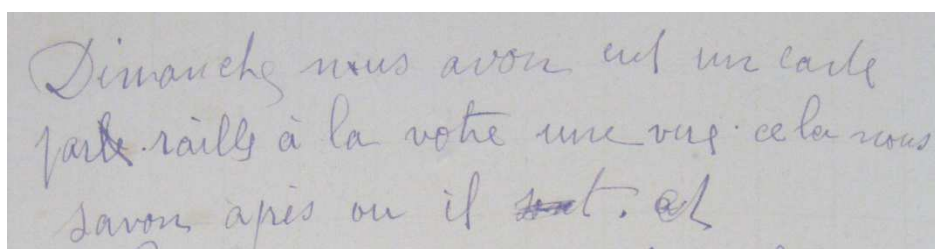 Dimanche nous avon eut un carte
parte raille à la votre une vue cela nous
savon après ou il sont. et